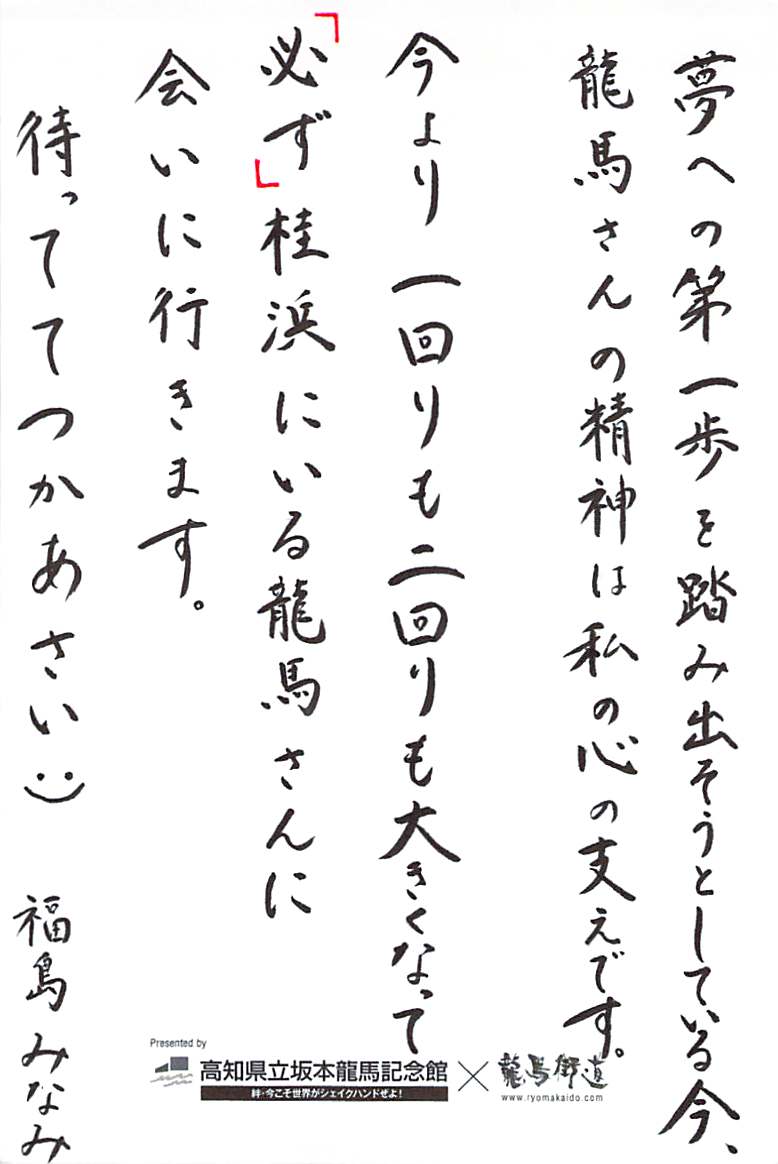 夢への第一歩を踏み出そうとしている今、
龍馬さんの精神は私の心の支えです。
今より一回りも二回りも大きくなって
「必ず」桂浜にいる龍馬さんに
会いに行きます。
待っててつかあさい
福島みなみ
Presented by
高知県立坂本龍馬記念館
絆・今こそ世界がシェイクハンドぜよ!
×
龍馬街道
www.ryomakaido.com